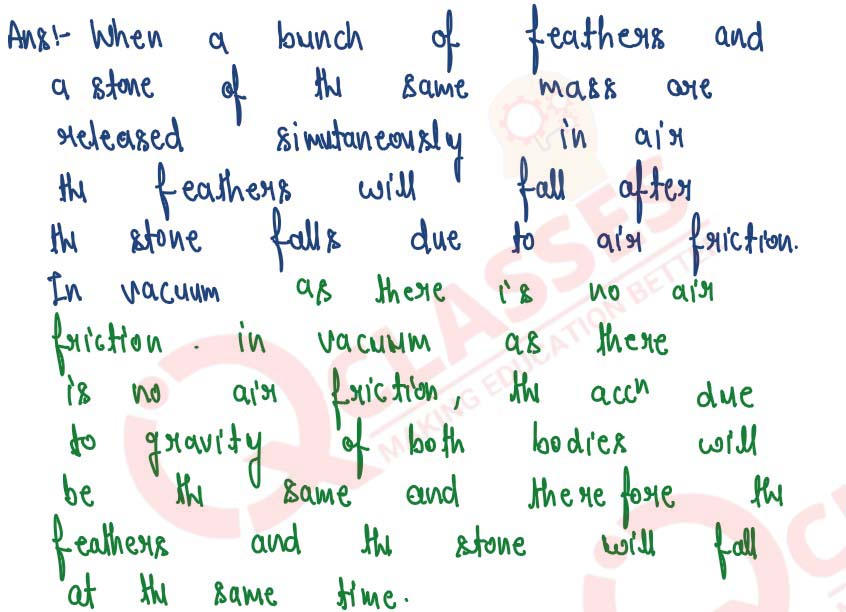 Ans:- When a bunch of feathers and
a stone of the same mass are
released simutaneously in air
the feathers will fall after
the stone falls due to air friction.
In vacuum as there is no air
friction. in vacuum as there
is no air friction, the accn due
to gravity of both bodies will
be the same and therefore the
feathers and the stone will fall
at the same time.
CLASSES
MAKING EDUCATION BETTE
CL